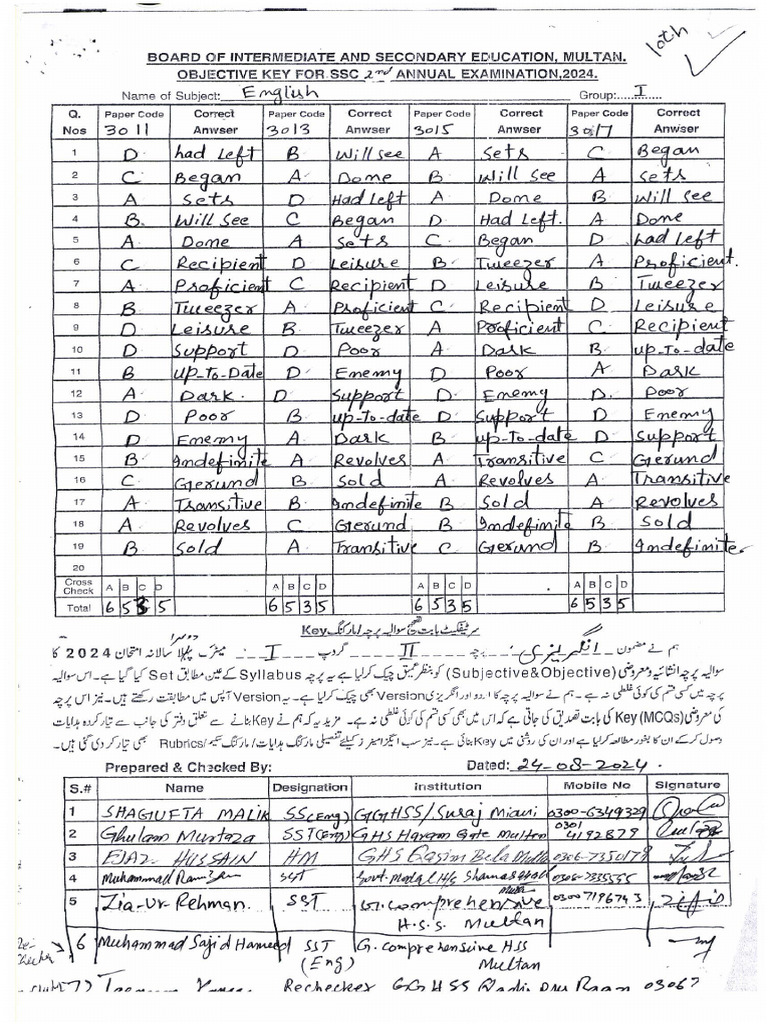 10th
BOARD OF INTERMEDIATE AND SECONDARY EDUCATION, MULTAN.
OBJECTIVE KEY FOR SSC 2nd ANNUAL EXAMINATION,2024.
Name of Subject: English Group: I
Q. Nos Paper Code 3011 Correct Anwser Paper Code 3013 Correct Anwser Paper Code 3015 Correct Anwser Paper Code 3017 Correct Anwser
1 D had left B Will see A Sets C Began
2 C Began A Dome B Will see A Sets
3 A Sets D Had left A Dome B Will see
4 B. Will See C Began D Had left. A Done
5 A Dome A Sets C Began D had left
6 C Recipient D Leisure B Tweezer A Proficient.
7 A Proficient C Recipient D Leisure B Tweezer
8 B Tweezer A Proficient C Recipient D Leisure
9 D Leisure B Tweezer A Proficient C Recipient
10 D Support D Poor A Dark B up-to-date
11 B up-to-Date D Enemy D Poor A Dark
12 A Dark. D Support D Enemy D. Poor
13 D Poor B up-to-date D Support D Enemy
14 D Enemy A Dark B up-to-date D Support
15 B Indefinite A Revolves A Transitive C Gerund
16 C Gerund B Sold A Revolves A Transitive
17 A Transitive B Indefinite B Sold A Revolves
18 A Revolves C Gerund B Indefinite B Sold
19 B Sold A Transitive C Gerund B Indefinite
20
Cross Check A B C D A B C D A B C D A B C D
Total 6 5 3 5 6 5 3 5 6 5 3 5 6 5 3 5
سرٹیفکیٹ بابت تصحیح سوالیہ پرچہ/مارکنگ Key
ہم نے مضمون انگریزی پرچہ II گروپ I میٹرک پہلا دوسرا سالانہ امتحان 2024 کا
سوالیہ پرچہ انشائیہ و معروضی (Subjective&Objective) کو بنظر عمیق چیک کر لیا ہے یہ پرچہ Syllabus کے عین مطابق Set کیا گیا ہے۔ اس سوالیہ
پرچہ میں کسی قسم کی کوئی غلطی نہ ہے۔ ہم نے سوالیہ پرچہ کا اردو اور انگریزی Version بھی چیک کر لیا ہے۔ یہ Version آپس میں مطابقت رکھتے ہیں۔ نیز اس پرچہ
کی معروضی (MCQs) Key کی بابت تصدیق کی جاتی ہے کہ اس میں بھی کسی قسم کی کوئی غلطی نہ ہے۔ مزید یہ کہ ہم نے Key بنانے سے متعلق دفتر کی جانب سے تیار کردہ ہدایات
وصول کر کے ان کا بغور مطالعہ کر لیا ہے اور ان کی روشنی میں Key بنائی ہے۔ نیز سب ایگزامینرز کیلئے تفصیلی مارکنگ ہدایات/مارکنگ سکیم/Rubrics بھی تیار کر دی گئی ہیں۔
Prepared & Checked By: Dated: 24-08-2024.
S.# Name Designation Institution Mobile No Signature
1 SHAGUFTA MALIK SS(Eng) GGHSS/Suraj Miani 0300-6349329
2 Ghulam Murtaza SST(Eng) GHS Hayam Gate Multan 0301 4192879
3 EJAZ HUSSAIN HM GHS Qasim Bela Multan 0306-7350179
4 Muhammad Ramzan SST Govt. Model H/S 
5 Zia-Ur-Rehman. SST Gt. Comprehensive H.S.S. Multan 03007196743
6 Muhammad Sajid Hameed SST (Eng) G. comprehensive HSS Multan
Rechecker GGHSS 03067